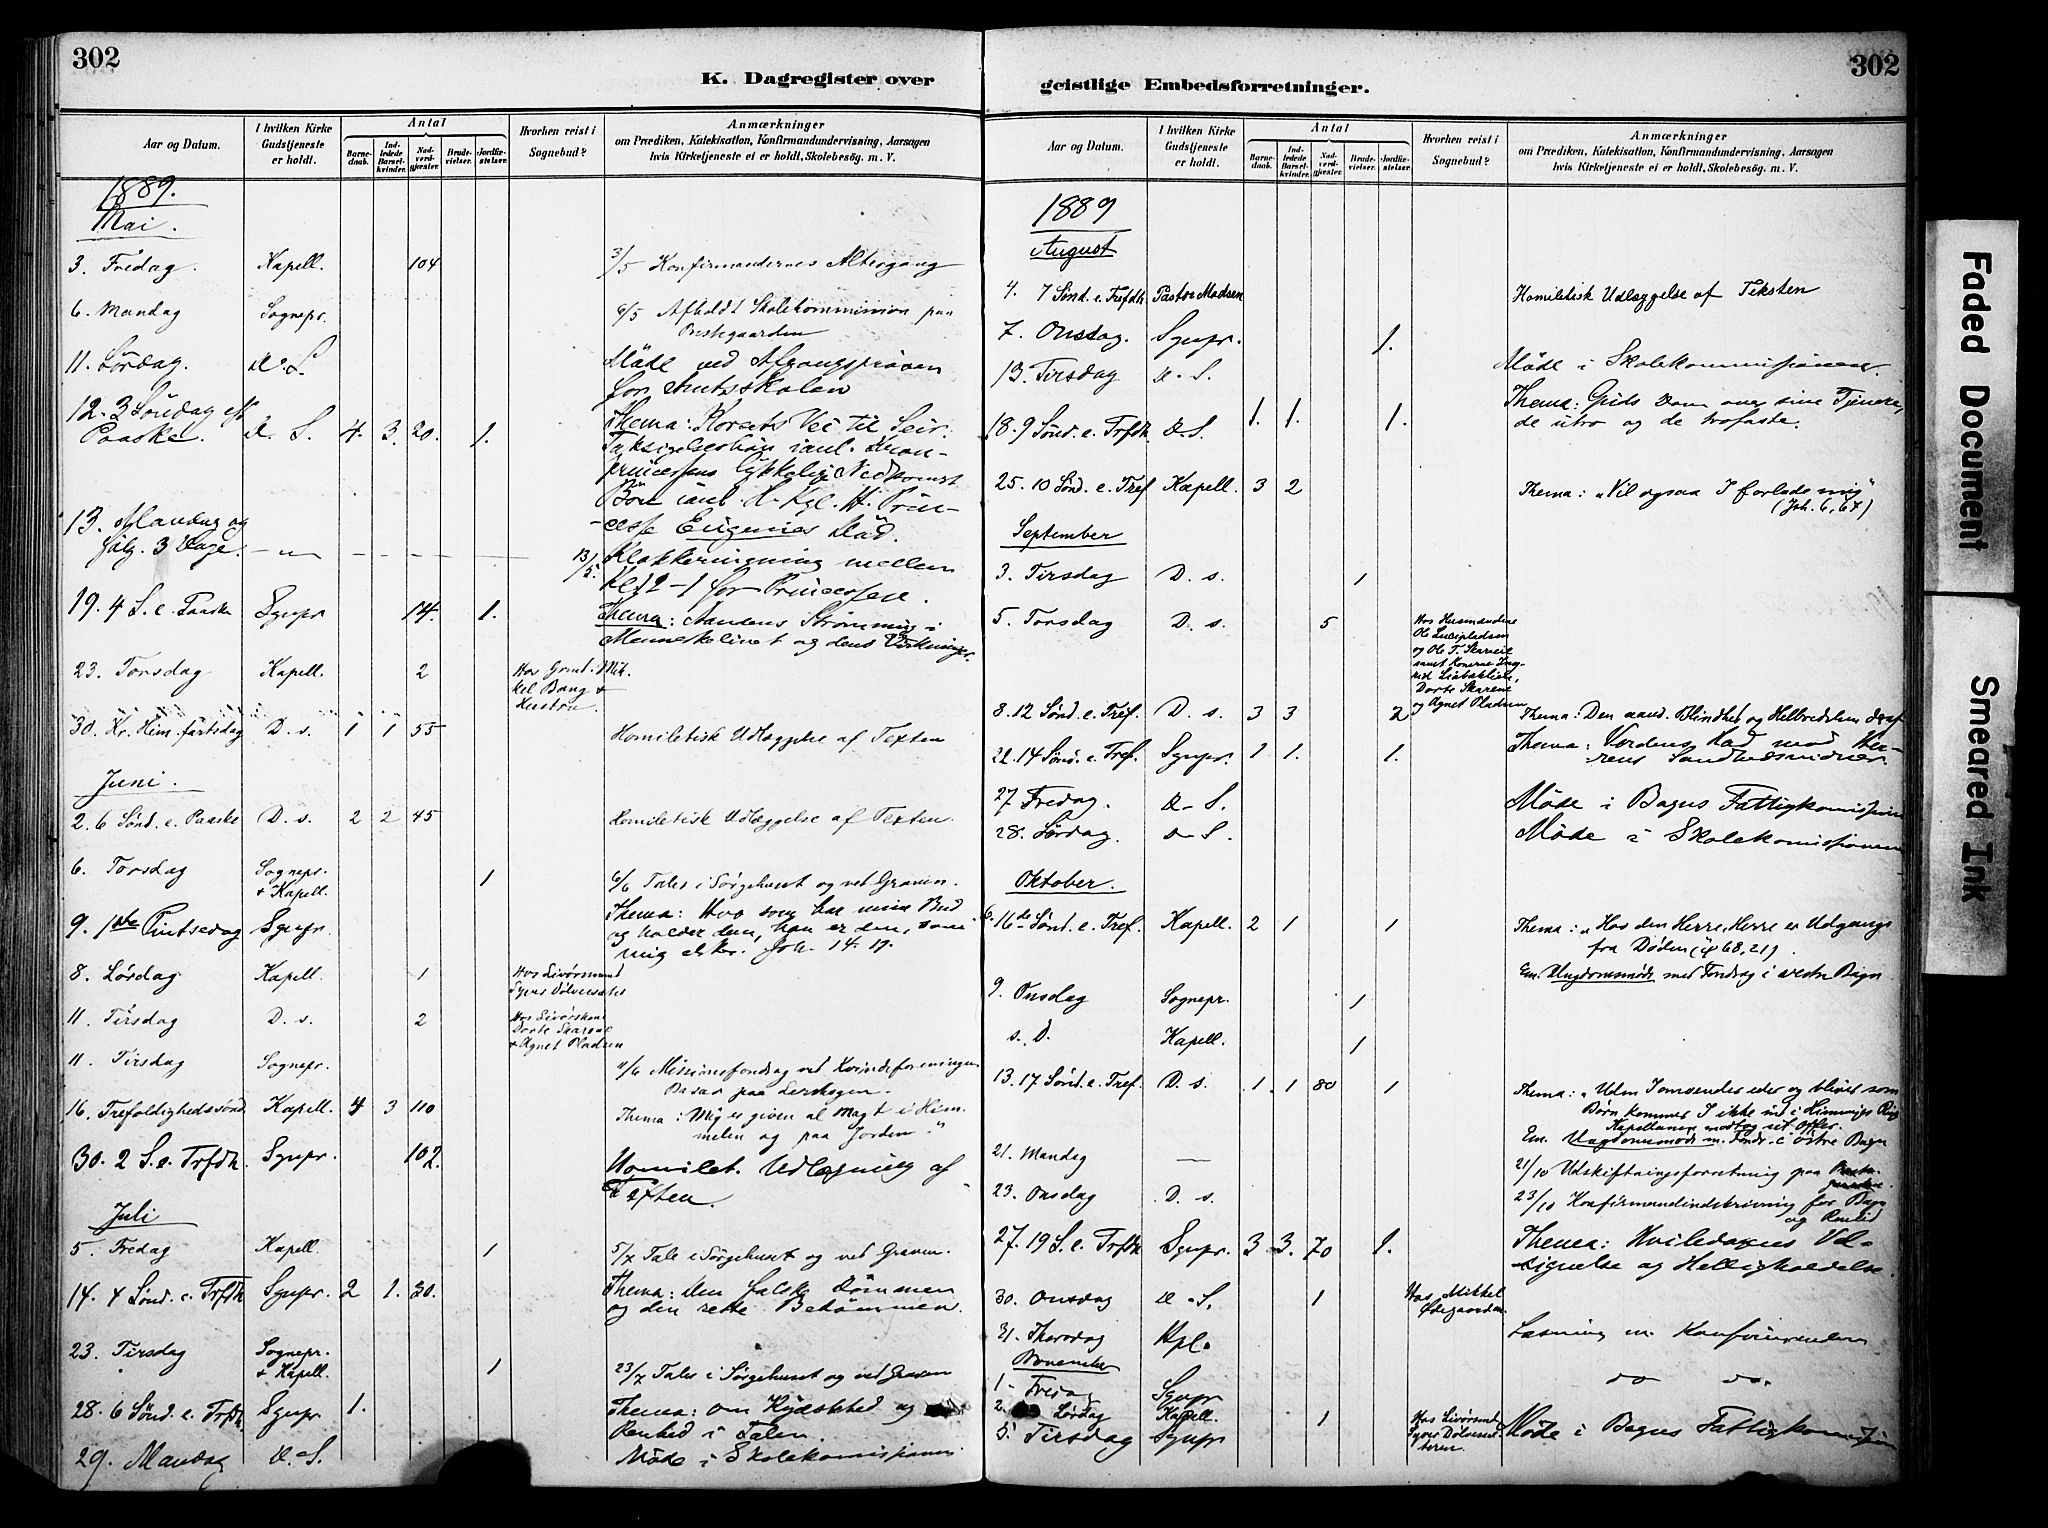 302
K. Dagregister over
Aar og Datum.
I hvilken Kirke Gudstjeneste er holdt.
Antal
Barnedaab.
Indledede Barselkvinder.
Nadverdgjester.
Brudevielser.
Jordfæstelser.
Hvorhen reist i Sognebud?
Anmærkninger
om Prædiken, Katekisation, Konfirmandundervisning, Aarsagen
hvis Kirketjeneste ei er holdt, Skolebesög. m. V.
1889.
Mai.
3. Fredag. Kapell. 104 3/5 Konfirmandernes Altergang
6. Mandag Sognepr. 6/5 Afholdt Skolekommission paa
Prestegaarden
11. Lørdag. D. S. Møde ved Afgangsprøven
for Amtsskolen
12. 3 Søndag eft. Thema: Korsets Vei til Seir.
Paaske. D. S. 4. 3. 20. 1. Taksigelsesbøn i anl. Kron-
princessens lykkelige Nedkomst
Bön i anl. H. Kgl. H. Prin-
cesse Eugenies Död.
13. Mandag og
følg. 3 Dage. 13/5. Klokkeringning mellem
Kl 12-1 for Princessen.
19. 4 S. e. Paaske Sgnpr 14. 1. Thema: Aandens Strømning i
Menneskelivet og dens Virkninger.
23. Torsdag Kapell. 2 Hos Grmd. Mik-
kel Bang +
Hustru.
30. Kr. Himfartsdag D. s. 1 1 55 Homiletisk Udlæggelse af Texten
Juni.
2. 6 Sönd. e. Paaske D. s. 2 2 45 Homiletisk Udlæggelse af Texten.
6. Torsdag Sognepr. + Kapell. 1 6/6 Tales i Sørgehuset og ved Graven.
9. 1ste Pintsedag Sgnpr. Thema: Hvo som har mine Bud
og holder dem, han er den, som
mig elsker. Joh. 14.
8. Lördag Kapell. 1 Hos Livörsmand
11. Tirsdag D. s. 2 Hos Livörskone
Dorte Skarene
+ Agnet Pladsen
11. Tirsdag Sognepr. 11/6 Missionsforedrag ved Kvindeforeningens
Basar paa
16. Trefoldighedssönd. Kapell. 4 3 110 Thema: Mig er given al Magt i Him-
melen og paa Jorden."
30. 2 S. e. Trfdh. Sgnpr. 102. Homilet. Udlægning af
Texten.
Juli
5. Fredag Kapell. 1 5/7 Tale i Sørgehuset og ved Graven.
14. 4 Sönd. e. Trfdh Sgnpr. 2 1. 20. Thema: Den falske Dømmen
og den rette Bedømmen.
23. Tirsdag Sognepr. + Kapell. 1 23/7 Tales i Sørgehuset og ved Graven
28. 6 Sönd. e. Trfdh. Sgnpr 1. Thema: Om Kydskhed og
Renhed i Talen.
29. Mandag D. S. Møde i Skolekomissionen
302
geistlige Embedsforretninger.
Aar og Datum.
I hvilken Kirke Gudstjeneste er holdt.
Antal
Barnedaab.
Indledede Barselkvinder.
Nadverdgjester.
Brudevielser.
Jordfæstelser.
Hvorhen reist i Sognebud?
Anmærkninger
om Prædiken, Katekisation, Konfirmandundervisning, Aarsagen
hvis Kirketjeneste ei er holdt, Skolebesög. m. V.
1889
August
4. 7 Sönd. e. Trefdh Pastor Madsen Homiletisk Udlæggelse af Teksten
7. Onsdag. Sgnpr. 1.
13. Tirsdag D. S. Møde i Skolekommissionen.
18. 9 Sönd. e. Trfdh. D. S. 1. 1. 1. Thema: Guds Dom over sine Tjenere,
de utro og de trofaste.
25. 10 Sönd. e. Tref Kapell. 3 2 Thema: "Vil ogsaa I forlade mig"
(Joh. 6, 67)
September
3. Tirsdag D. s. 1
5. Torsdag D. s. 5 Hos Husmændene
og Ole T. Skarene
samt Konerne Ing-
Dorte Skarene
og Agnet Pladsen
8. 12 Sönd. e. Tref. D. s. 3 3 2 Thema: Den aand. Blindhed og Helbredelsen deraf
22. 14 Sönd. e. Tref. Sgnpr. 1 1. 1. Thema: Verdens Had mod Her-
rens Sandhedsvidner.
27 Fredag. D. S. Møde i Bagns Fattigkomission
28. Lørdag. D S. Møde i Skolekomissionen
Oktober.
6. 16de Sönd. e. Tref. Kapell. 2 1 1 Thema: "Hos den Herre, Herre er Udgange
fra Døden (ψ 68, 21).
Em. Ungdomsmöde med Foredrag i vestre Bagn
9. Onsdag Sognepr. 1
s. D. Kapell. 1
13. 17 Sönd. e. Tref. D. s. 1 1 80 1 Thema: "Uden I omvender eder og bliver som
Børn kommer I ikke ind i Himmerigs Rige
Kapellanen modtog sit Offer.
Em. Ungdomsmöde m. Foredr. i östre Bagn
21. Mandag — 21/10 Udskiftningsforretning paa
23. Onsdag D. s. 23/10 Konfirmandindskrivning for Bagn
og Reinlid
27. 19 S. e. Trfdh Sgnpr. 3 3. 70 1. Thema: Hviledagens Vel-
signelse og Helligholdelse.
30. Onsdag D. S. 1 Hos Mikkel
Ødegaarden
31. Thorsdag Kpl. Læsning m. Konfirmanden
November
1 Fredag Sgnpr do do.
2. Lørdag Kapell. 1 Hos Livörsmd.
5 Tirsdag Sgnpr Møde i Bagns Fattigkomission
Faded Document
Smeared Ink